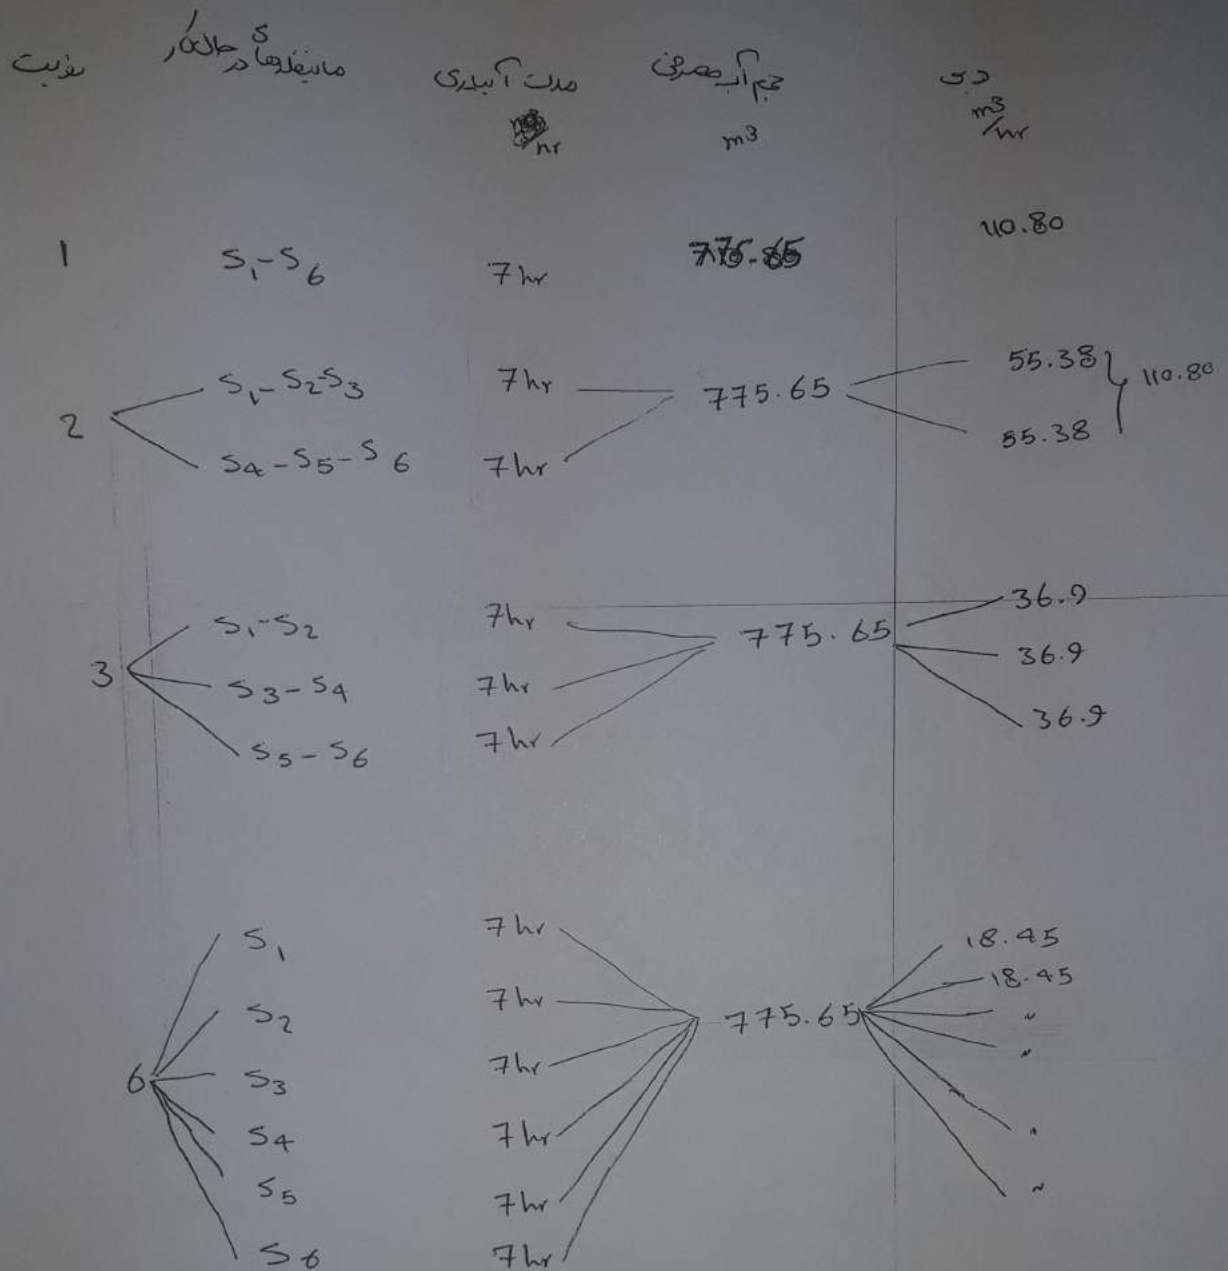 نوبت مانیفلدهای در حال کار مدت آبیاری حجم آب مصرفی دبی
hr m³ m³/hr
1 S₁-S₆ 7hr 775.65 110.80
2 S₁-S₂-S₃ 7hr 775.65 55.38 110.80
S₄-S₅-S₆ 7hr 55.38
3 S₁-S₂ 7hr 775.65 36.9
S₃-S₄ 7hr 36.9
S₅-S₆ 7hr 36.9
6 S₁ 7hr 775.65 18.45
S₂ 7hr 18.45
S₃ 7hr "
S₄ 7hr "
S₅ 7hr "
S₆ 7hr "